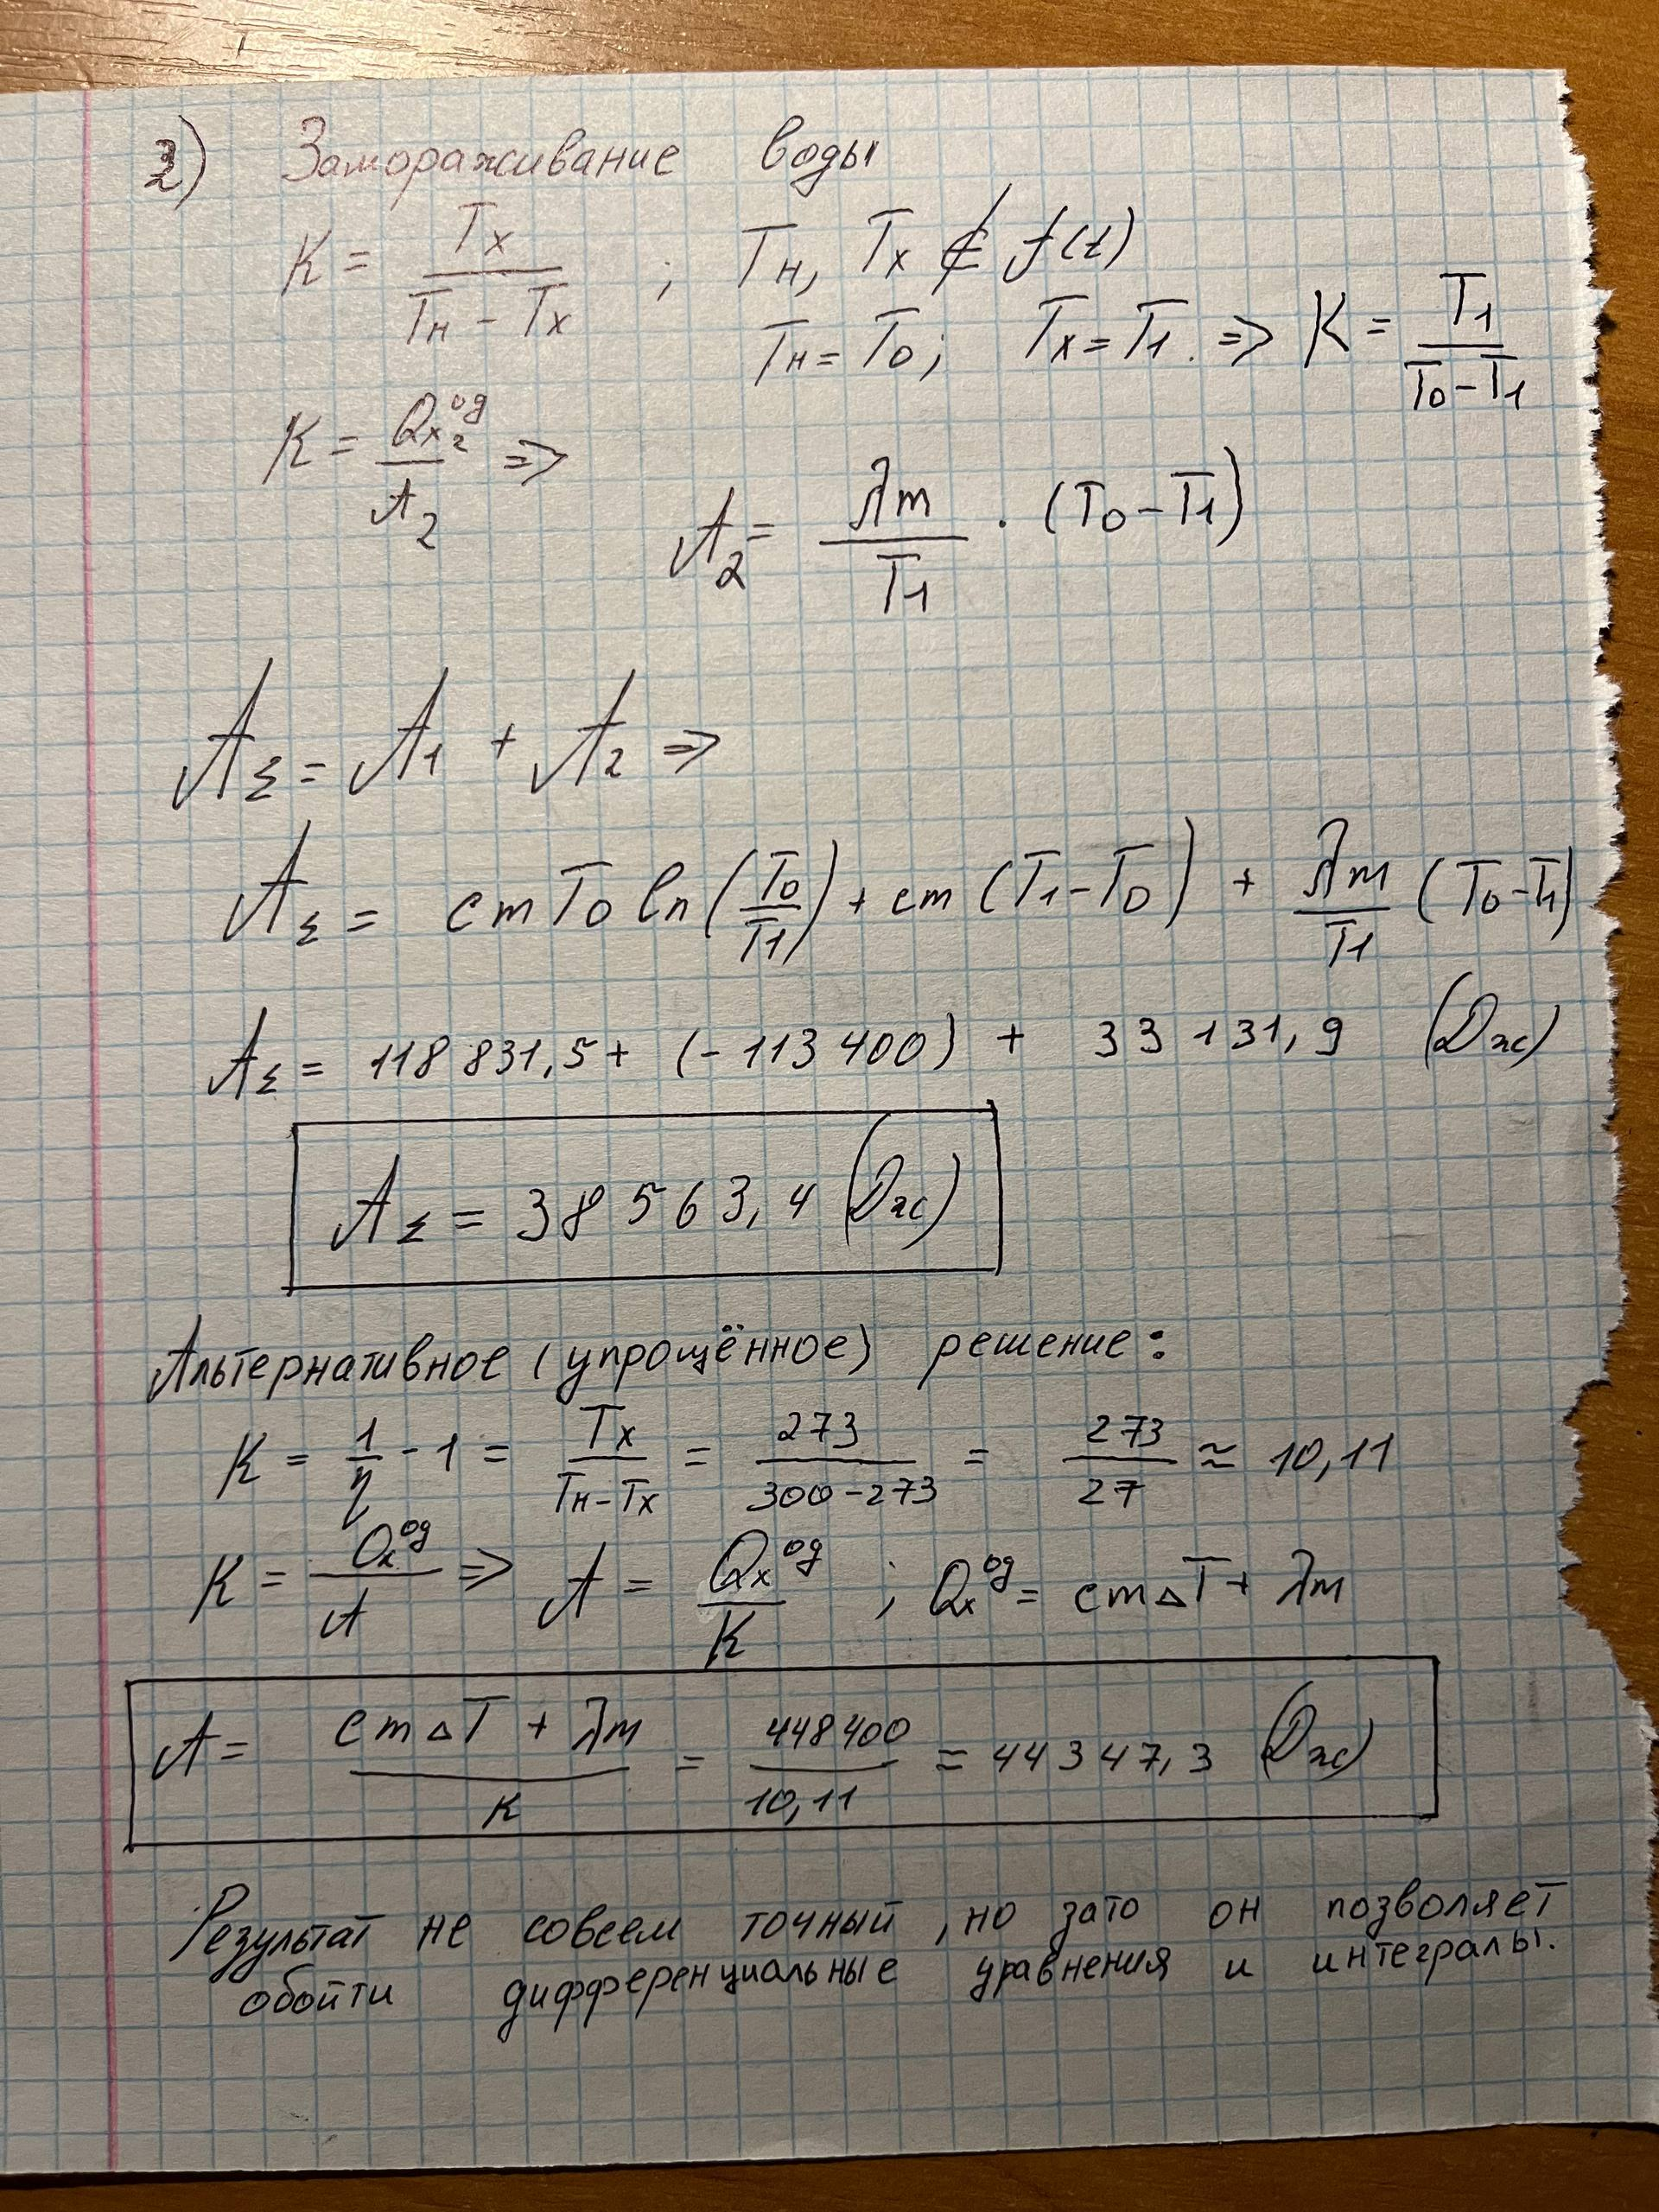 2) Замораживание воды
K = Tx / (Tн - Tx) ; Tн, Tx ∉ f(t)
Tн = T0; Tx = T1. => K = T1 / (T0 - T1)
K = Qx2^од / A2 =>
A2 = λm / T1 · (T0 - T1)
AΣ = A1 + A2 =>
AΣ = cmT0 ln(T0/T1) + cm(T1 - T0) + λm/T1 (T0 - T1)
AΣ = 118 831,5 + (-113 400) + 33 131,9 (Дж)
AΣ = 38 563,4 (Дж)
Альтернативное (упрощённое) решение:
K = 1/η - 1 = Tx / (Tн - Tx) = 273 / (300 - 273) = 273 / 27 ≈ 10,11
K = Qx^од / A => A = Qx^од / K ; Qx^од = cm△T + λm
A = (cm△T + λm) / K = 448400 / 10,11 ≈ 44 347,3 (Дж)
Результат не совсем точный, но зато он позволяет
обойти дифференциальные уравнения и интегралы.